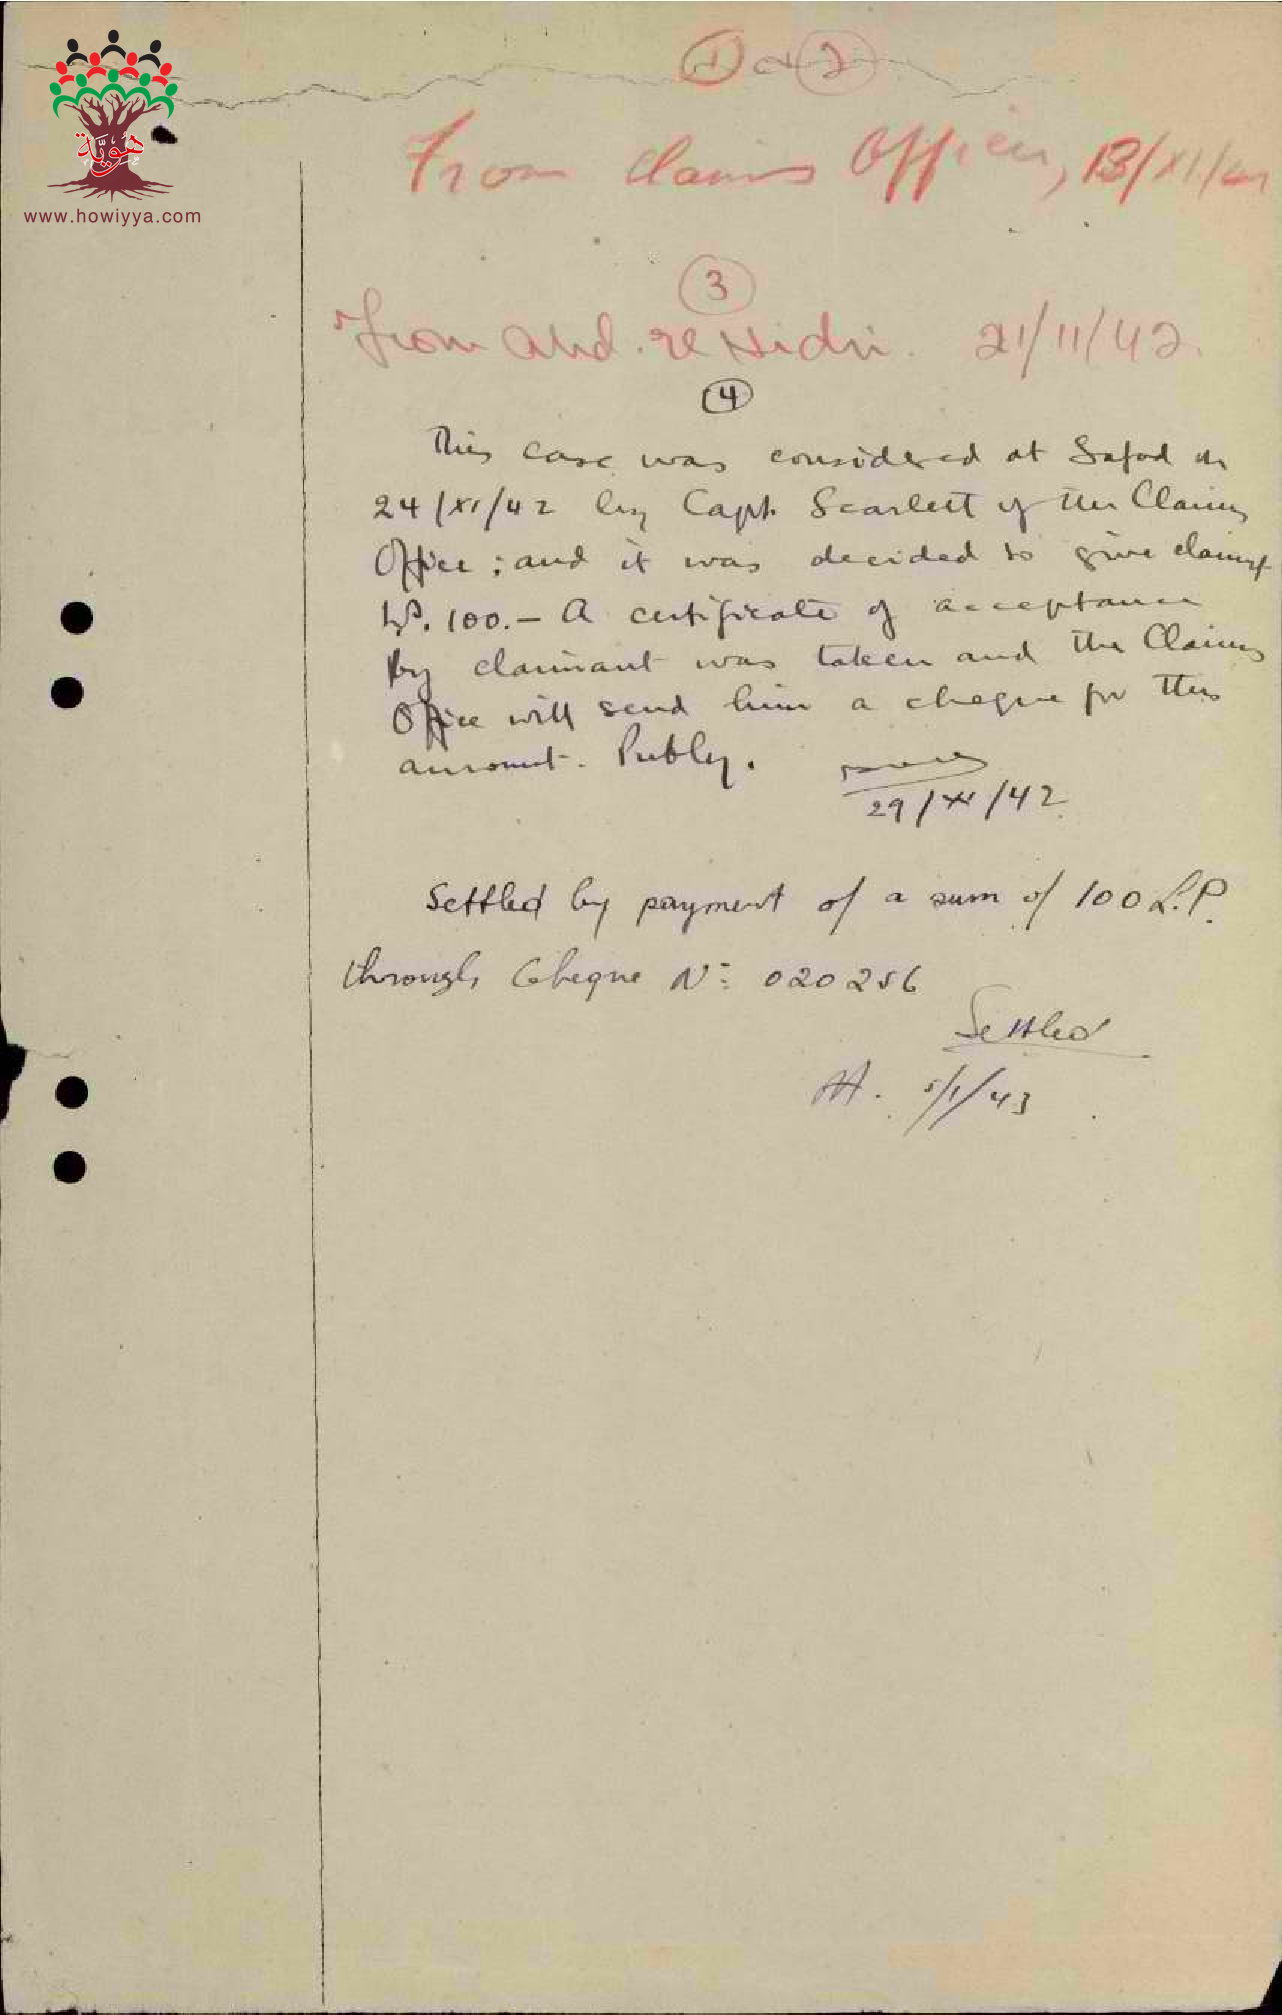 هويّة
www.howiyya.com
① & ②
From Claims Officer, 13/XI/42
③
From Abd. el Hidri. 21/11/42.
④
This case was considered at Safad on
24/XI/42 by Capt. Scarlett of the Claims
Office; and it was decided to give claimt
LP. 100.- A certificate of acceptance
by claimant was taken and the Claims
Office will send him a cheque for this
amount.
29/XI/42
Settled by payment of a sum of 100 L.P.
through Cheque No: 020256
Settled
5/1/43